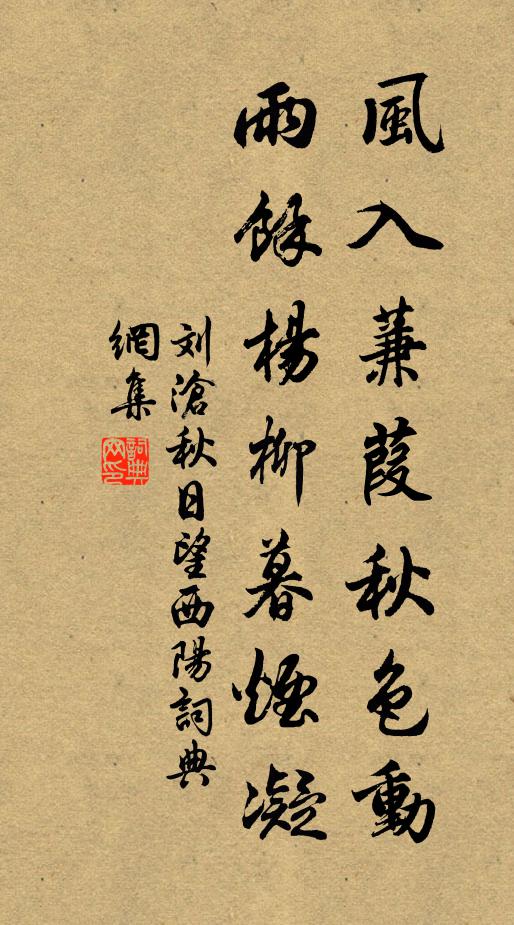 風入蒹葭秋色動
雨餘楊柳暮煙凝
刘滄秋日望西陽詞典
網集
詞典
网印